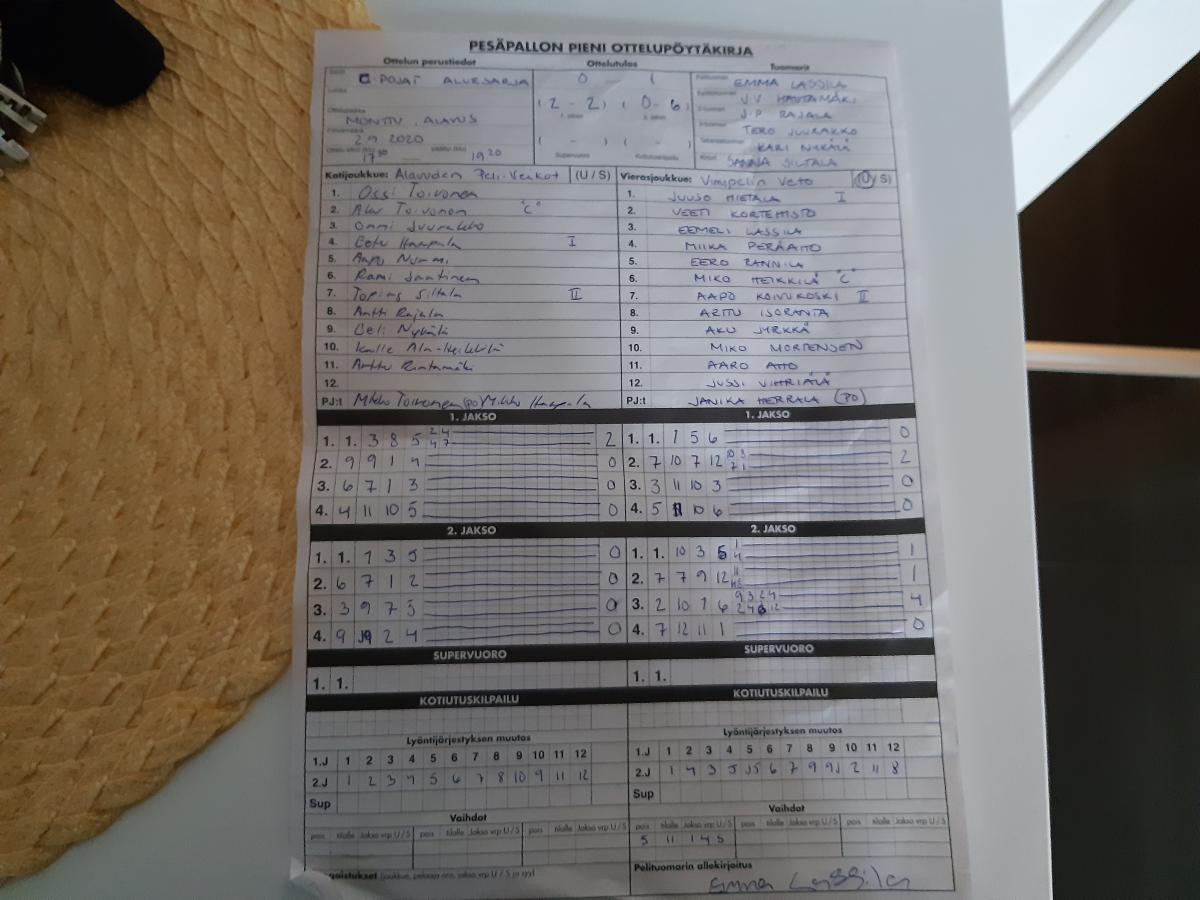 PESÄPALLON PIENI OTTELUPÖYTÄKIRJA
Ottelun perustiedot Ottelutulos Tuomarit
C POJAT ALUESARJA 0 - 1 EMMA LASSILA
(2 - 2) (0 - 6) J-V HAUTAMÄKI
MONTTU, ALAVUS J-P RAJALA
2.9 2020 ( - ) ( - ) TERO JUURAKKO
KARI NYKÄLÄ
17 30 19 20 Supervuoro Kotiutuskilpailu SANNA SILTALA
Kotijoukkue: Alavuden Peli-Veikot (U / S) Vierasjoukkue: Vimpelin Veto (U / S)
1. Ossi Toivonen 1. JUUSO HIETALA I
2. Aku Toivonen "C" 2. VEETI KORTEHISTO
3. Onni Juurakko 3. EEMELI LASSILA
4. Eetu Haapala I 4. MIIKA PERÄAITO
5. Aapo Nurmi 5. EERO RANNILA
6. Rami Jaatinen 6. MIKO HEIKKILÄ "C"
7. Topias Siltala II 7. AAPO KOIVUKOSKI II
8. Antti Rajala 8. ARTTU ISORANTA
9. Eeli Nykälä 9. AKU JYRKKÄ
10. Kalle Ala-Heikkilä 10. MIKO MORTENSEN
11. Arttu Rintamäki 11. AARO AHO
12. 12. JUSSI VIHRIÄLÄ
PJ:t Mikko Toivonen (PO) Mikko Haapala JANIKA HERRALA (PO)
1. JAKSO 1. JAKSO
1. 1. 3 8 5 2 4 4 7 2 1. 1. 1 5 6 0
2. 9 9 1 4 0 2. 7 10 7 12 10 3 7 1 2
3. 6 7 1 3 0 3. 3 11 10 3 0
4. 4 11 10 5 0 4. 5 11 10 6 0
2. JAKSO 2. JAKSO
1. 1. 7 3 5 0 1. 1. 10 3 5 1 4 1
2. 6 7 1 2 0 2. 7 7 9 12 11 1
3. 3 9 7 5 0 3. 2 10 7 6 9 3 2 4 2 4 6 12 4
4. 9 2 4 0 4. 7 12 11 1 0
SUPERVUORO SUPERVUORO
1. 1. 1. 1.
KOTIUTUSKILPAILU KOTIUTUSKILPAILU
Lyöntijärjestyksen muutos Lyöntijärjestyksen muutos
1.J 1 2 3 4 5 6 7 8 9 10 11 12 1.J 1 2 3 4 5 6 7 8 9 10 11 12
2.J 1 2 3 4 5 6 7 8 10 9 11 12 2.J 1 4 3 5 6 7 9 2 11 8
Sup Sup
Vaihdot Vaihdot
pois tilalle Jakso vrp U / S pois tilalle Jakso vrp U / S pois tilalle Jakso vrp U / S pois tilalle Jakso vrp U / S pois tilalle Jakso vrp U / S pois tilalle Jakso vrp U / S
5 11 1 4 S
Pelituomarin allekirjoitus
Emma Lassila